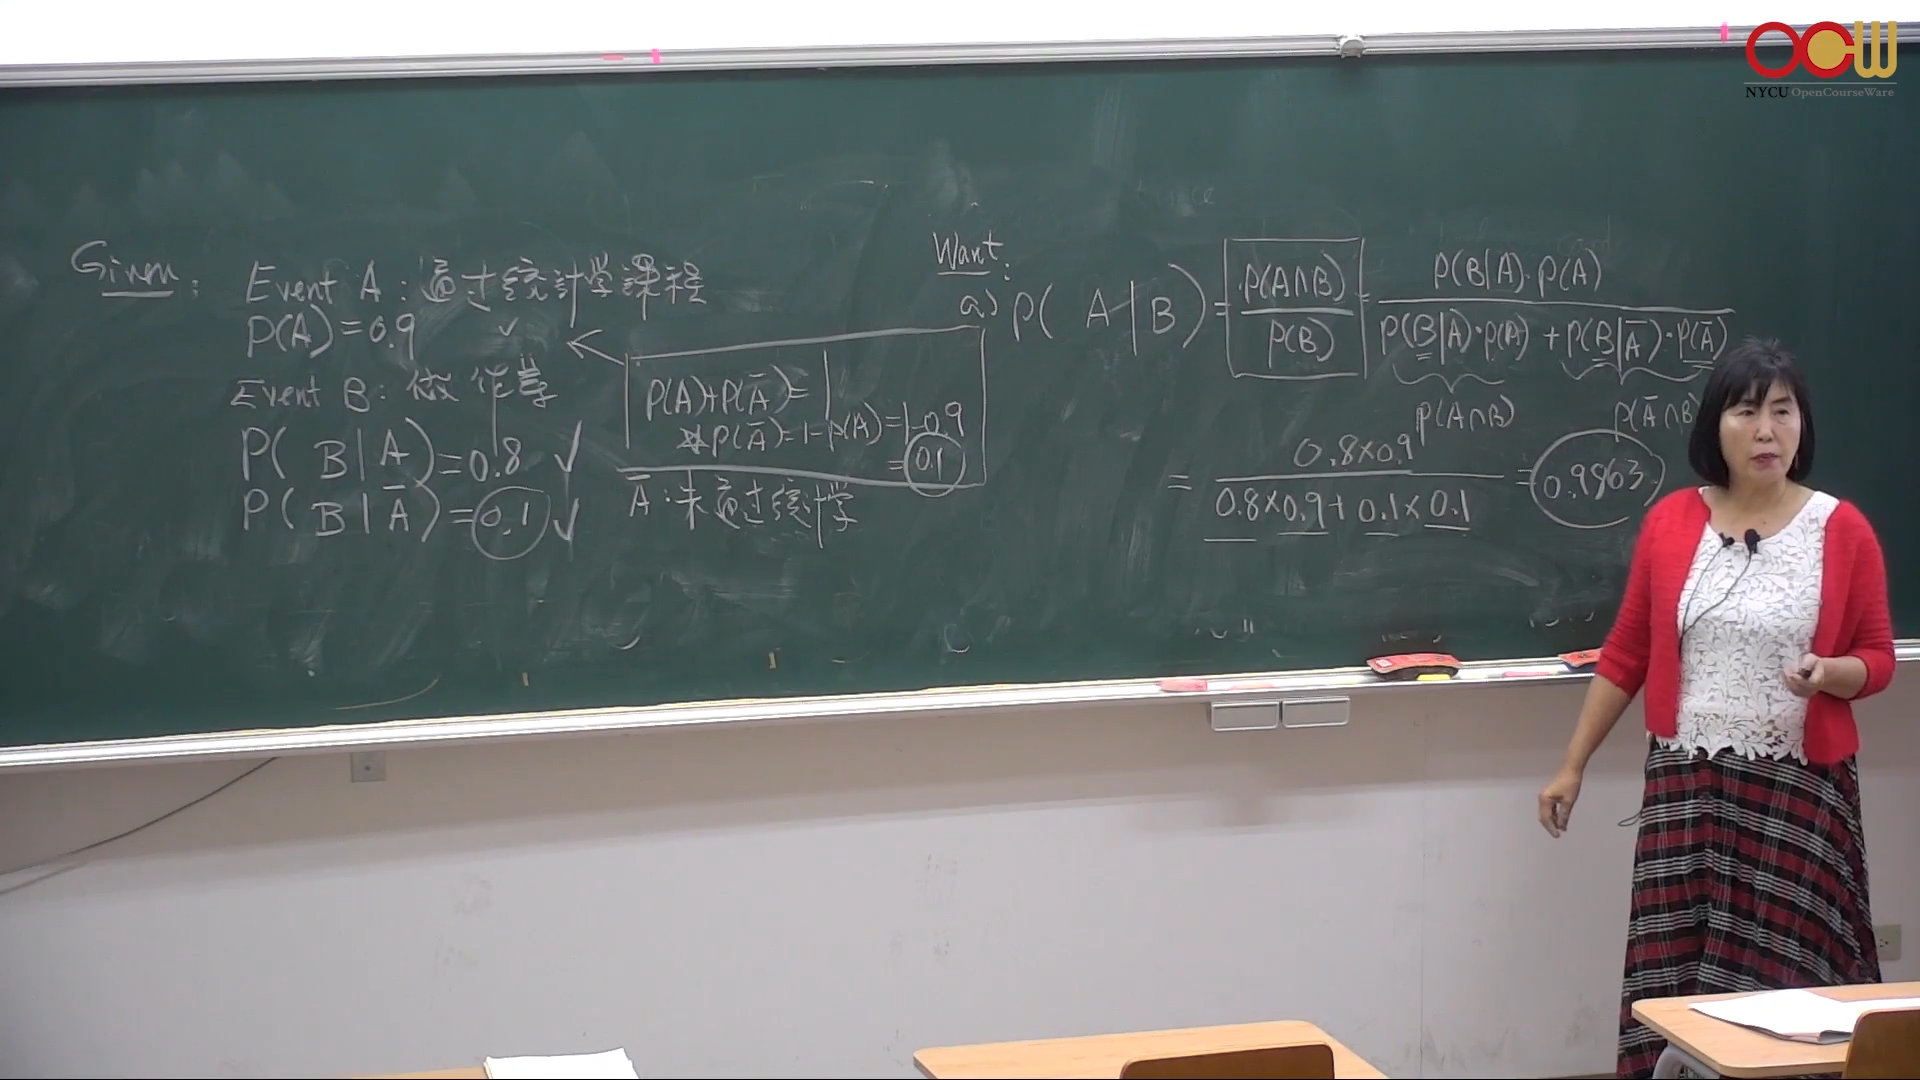 OCW
NYCU OpenCourseWare
Given:
Event A: 通过統計学課程
P(A)=0.9
Event B: 做作業
P( B|A)=0.8 ✓
P( B|Ā)=0.1 ✓
P(A)+P(Ā)=1
P(Ā)=1-P(A)=1-0.9
=0.1
Ā:未通过統計学
Want:
a) P( A|B)= P(A∩B) / P(B) = P(B|A)·P(A) / P(B|A)·P(A) + P(B|Ā)·P(Ā)
P(A∩B) P(Ā∩B)
= 0.8×0.9 / 0.8×0.9+0.1×0.1 = 0.9863